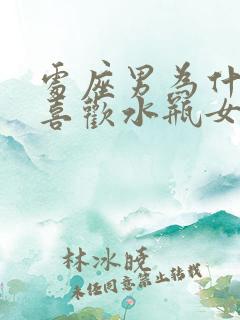 雷座男為什
喜歡水瓶女
林冰曉
未经同意禁止转载